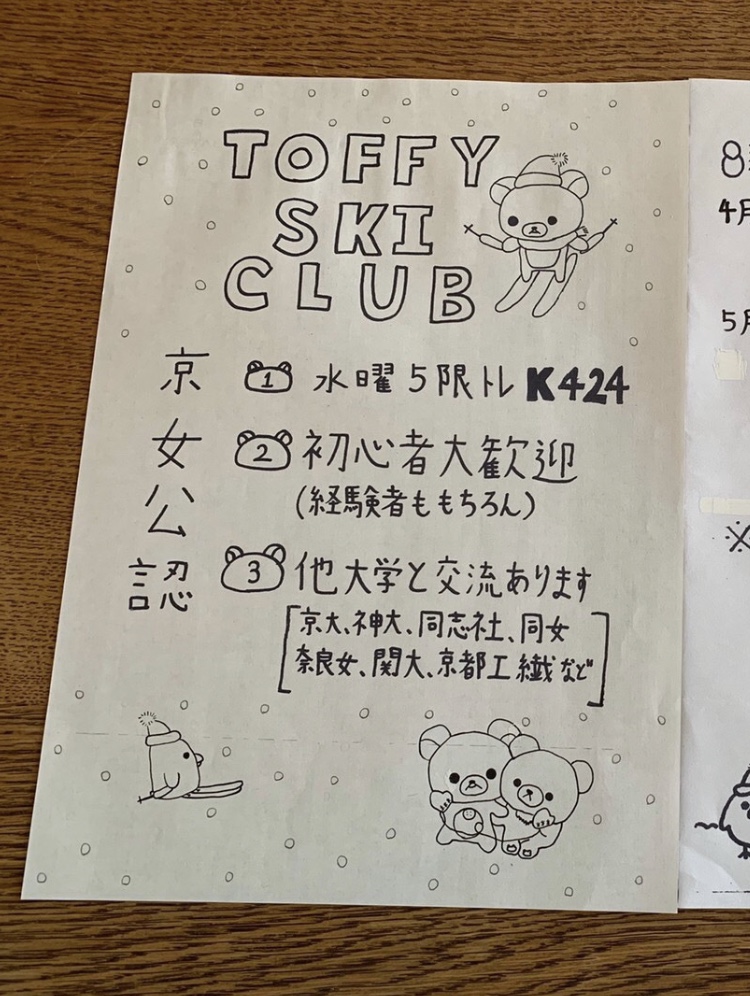 TOFFY
SKI
CLUB
京女公認
1 水曜5限トレ K424
2 初心者大歓迎
(経験者ももちろん)
3 他大学と交流あります
[京大、神大、同志社、同女
奈良女、関大、京都工繊など]
8
4月
5月
※